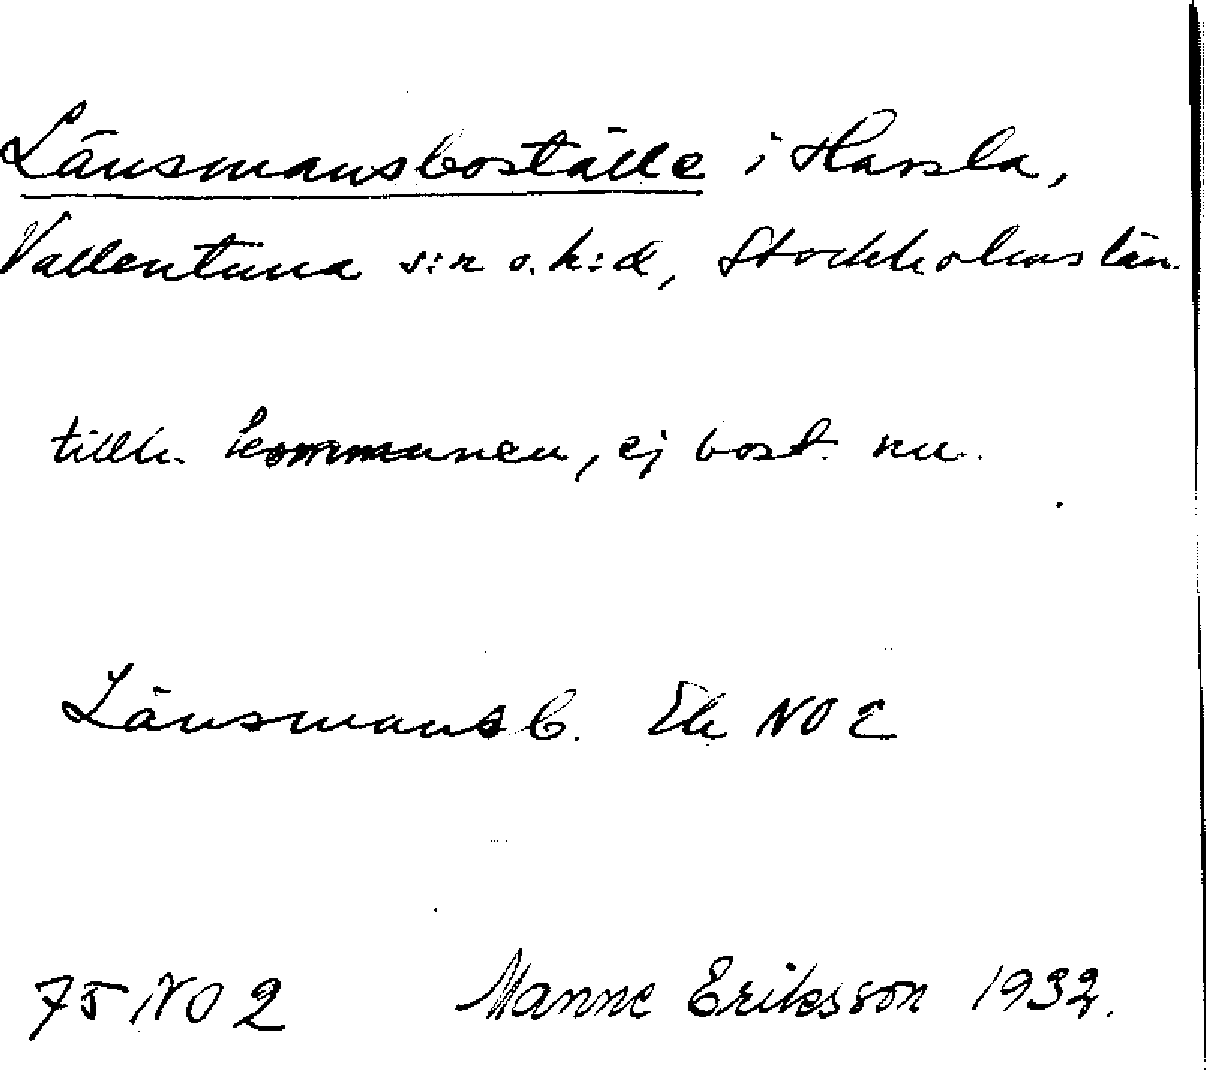 Länsmansboställe i Harsla,
Vallentuna s:n o. h:d, Stockholms län.
tillh. kommunen, ej bost. nu.
Länsmansb. Ek NO 2
75 NO 2 Manne Eriksson 1932.